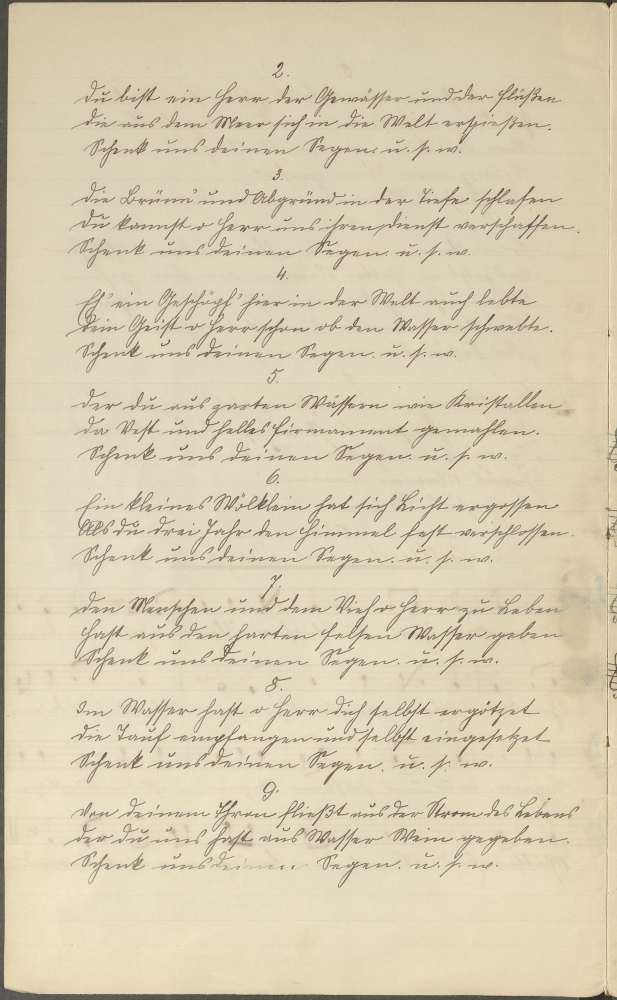 2.
Du bist ein Herr der Gewässer und der Flüßen
die aus dem Meer sich in die Welt ergießen.
Schenk uns deinen Segen. u. s. w.
3.
Die Brünn' und Abgründ in der Tiefe schlafen
Du kannst o Herr uns ihren Dienst verschaffen.
Schenk uns deinen Segen. u. s. w.
4.
Eh' ein Geschöpf hier in der Welt auch lebte
Dein Geist o Herr schon ob den Wasser schwebte.
Schenk uns deinen Segen. u. s. w.
5.
Der du aus zarten Wässern wie Kristallen
Da Vest und helles Firmament gemahlen.
Schenk uns deinen Segen. u. s. w.
6.
Ein kleines Wölklein hat sich Licht ergossen
Als du drei Jahr den Himmel fest verschlossen.
Schenk uns deinen Segen. u. s. w.
7.
Den Menschen und dem Vieh o Herr zu Leben
Hast aus den harten Felsen Wasser geben
Schenk uns deinen Segen. u. s. w.
8.
Im Wasser hast o Herr dich selbst ergötzet
die Tauf empfangen und selbst eingesetzet
Schenk uns deinen Segen. u. s. w.
9.
Von deinem Thron fließt aus der Strom des Lebens
der du uns hast aus Wasser Wein gegeben.
Schenk uns deinen Segen. u. s. w.